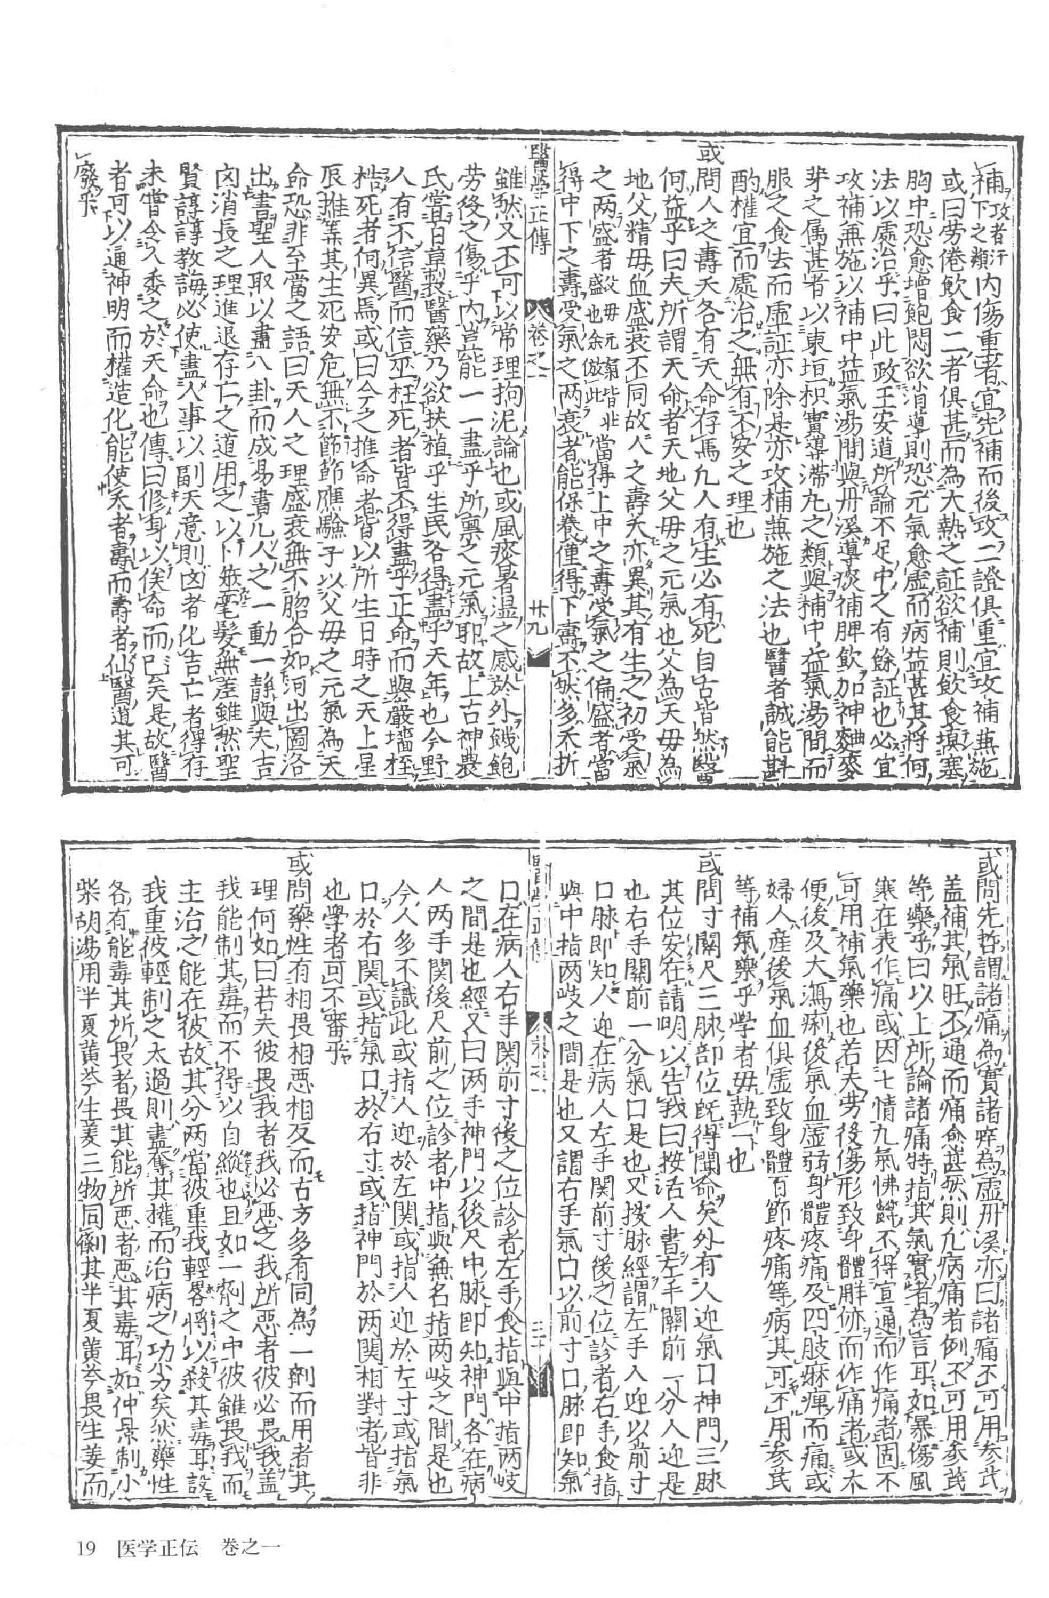 補攻者汗下之類內傷重者宜先補而後攻二證俱重宜攻補兼施
或曰勞倦飲食二者俱甚而為大熱之証欲補則飲食填塞
胸中恐愈增飽悶欲消導則恐元氣愈虛而病益甚其將何
法以處治乎曰此政王安道所論不足中之有餘証也必宜
攻補兼施以補中益氣湯間與丹溪導痰補脾飲加神麴麥
芽之属甚者以東垣枳實導滯丸之類與補中益氣湯間而
服之食去而虛証亦除是亦攻補兼施之法也醫者誠能斟
酌權宜而處治之無有不安之理也
或問人之壽夭各有天命存焉凡人有生必有死自古皆然醫
何益乎曰夫所謂天命者天地父母之元氣也父為天母為
地父精母血盛衰不同故人之壽夭亦異其有生之初受氣
之两盛者父母元氣皆非盛也余倣此當得上中之壽受氣之偏盛者當
得中下之壽受氣之两衰者能保養僅得下壽不然多夭折
醫學正傳 卷之一 廿九
雖然又不可以常理拘泥論也或風寒暑濕之感於外饑飽
勞役之傷乎內豈能一一盡乎所禀之元氣耶故上古神農
氏嘗百草製醫藥乃欲扶植乎生民各得盡乎天年也今野
人有不信醫而信巫枉死者皆不得盡乎正命而與巖墻桎
梏死者何異焉或曰今之推命者皆以所生日時之天上星
辰推筭其生死安危無不節節應驗子以父母之元氣為天
命恐非至當之語曰天人之理盛衰無不脗合如河出圖洛
出書聖人取以畫八卦而成易書凡人之一動一靜與夫吉
凶消長之理進退存亡之道用之以卜筮毫髮無差雖然聖
賢諄諄教誨必使盡人事以副天意則凶者化吉亡者得存
未嘗令人委之於天命也傳曰修身以俟命而已矣是故醫
者可以通神明而權造化能使夭者壽而壽者仙醫道其可
廢乎
或問先哲謂諸痛為實諸痒為虛丹溪亦曰諸痛不可用參芪
蓋補其氣旺不通而痛愈甚然則凡病痛者例不可用參芪
等藥乎曰以上所論諸痛特指其氣實者為言耳如暴傷風
寒在表作痛或因七情九氣怫鬱不得宣通而作痛者固不
可用補氣藥也若夫勞役傷形致身體解㑊而作痛者或大
便後及大瀉痢後氣血虛弱身體疼痛及四肢麻痺而痛或
婦人産後氣血俱虛致身體百節疼痛等病其可不用參芪
等補氣藥乎學者毋執一也
或問寸關尺三脉部位旣得聞命矣外有人迎氣口神門三脉
其位安在請明以告我曰按活人書左手關前一分人迎是
也右手關前一分氣口是也又按脉經謂左手人迎以前寸
口脉即知人迎在病人左手関前寸後之位診者右手食指
與中指两歧之間是也又謂右手氣口以前寸口脉即知氣
醫學正傳 卷之一 三十
口在病人右手関前寸後之位診者左手食指與中指两歧
之間是也經又曰两手神門以後尺中脉即知神門各在病
人两手関後尺前之位診者中指與無名指两歧之間是也
今人多不識此或指人迎於左関或指人迎於左寸或指氣
口於右関或指氣口於右寸或指神門於两関相對者皆非
也學者可不審乎
或問藥性有相畏相惡相反而古方多有同為一劑而用者其
理何如曰若夫彼畏我者我必惡之我所惡者彼必畏我蓋
我能制其毒而不得以自縱也且如一劑之中彼雖畏我而
主治之能在彼故其分两當彼重我輕畧將以殺其毒耳設
我重彼輕制之太過則盡奪其權而治病之功劣矣然藥性
各有能毒其所畏者畏其能所惡者惡其毒耳如仲景制小
柴胡湯用半夏黄芩生姜三物同劑其半夏黄芩畏生姜而
19 医学正伝 巻之一